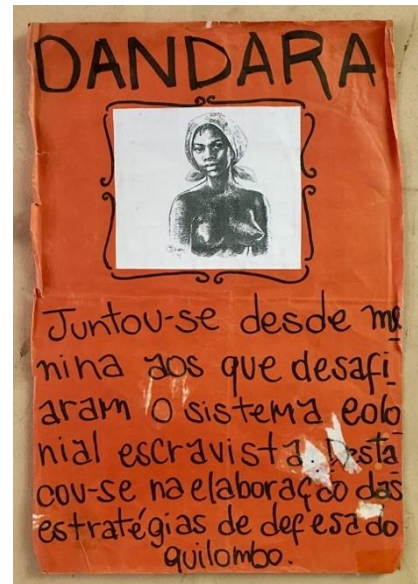 DANDARA
Juntou-se desde me
nina aos que desafi
aram o sistema colo
nial escravista. Desta
cou-se na elaboração das
estratégias de defesa do
quilombo.